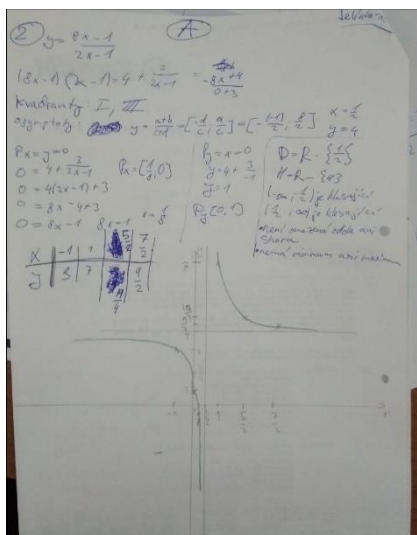 A
② y = 8x-1 / 2x-1
(8x-1) (2x-1) = 4 + 3/2x-1
-8x+4
0+3
kvadranty: I, III
asymptoty: y = ax+b/cx+d = [-d/c, a/c] = [-(-1)/2, 8/2] x = 1/2
y = 4
Px = y = 0
0 = 4 + 3/2x-1
0 = 4(2x-1)+3
0 = 8x-4+3
0 = 8x-1
8x=1
x = 1/8
Px = [1/8, 0]
Py = x = 0
y = 4 + 3/-1
y = 1
Py [0, 1]
D = R - {1/2}
H = R - {4}
(-∞, 1/2) je klesající
(1/2, ∞) je klesající
• není omezená zdola ani
shora
• nemá minimum ani maximum
x | -1 | 1 | 5/2 | 7/2
y | 3 | 7 | 19/4 | 9/2
-1 1 5/2 7/2